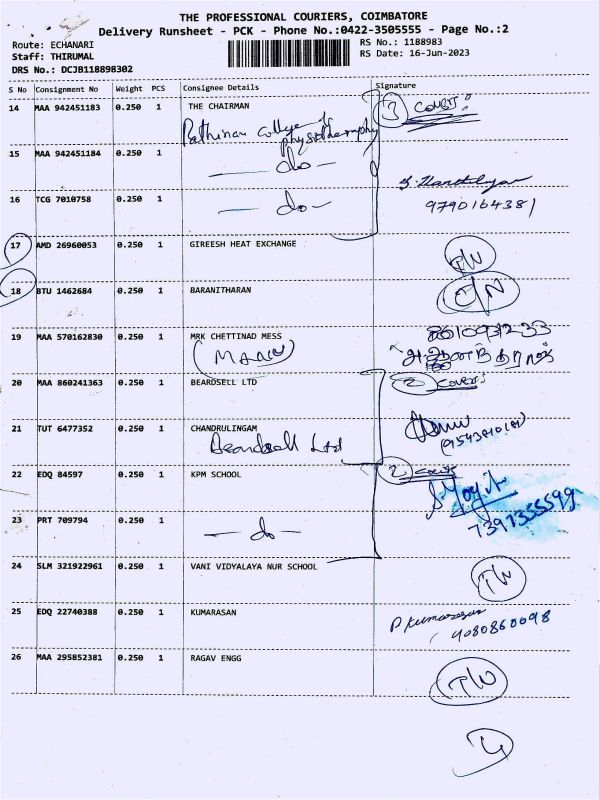 THE PROFESSIONAL COURIERS, COIMBATORE
Delivery Runsheet - PCK - Phone No.:0422-3505555 - Page No.:2
Route: ECHANARI RS No.: 1188983
Staff: THIRUMAL RS Date: 16-Jun-2023
DRS No.: DCJB118898302
S No Consignment No Weight PCS Consignee Details Signature
14 MAA 942451183 0.250 1 THE CHAIRMAN 3 Cover
College of physiotherapy
15 MAA 942451184 0.250 1 -do-
16 TCG 7010758 0.250 1 -do- 9790164381
17 AMD 26960053 0.250 1 GIREESH HEAT EXCHANGE
18 BTU 1462684 0.250 1 BARANITHARAN
19 MAA 570162830 0.250 1 MRK CHETTINAD MESS
20 MAA 860241363 0.250 1 BEARDSELL LTD 2 Covers
21 TUT 6477352 0.250 1 CHANDRULINGAM
Beardsell Ltd
22 EDQ 84597 0.250 1 KPM SCHOOL 2 Covers
23 PRT 709794 0.250 1 -do- 7397355599
24 SLM 321922961 0.250 1 VANI VIDYALAYA NUR SCHOOL
25 EDQ 22740388 0.250 1 KUMARASAN P Kumarasan
9080860098
26 MAA 295852381 0.250 1 RAGAV ENGG